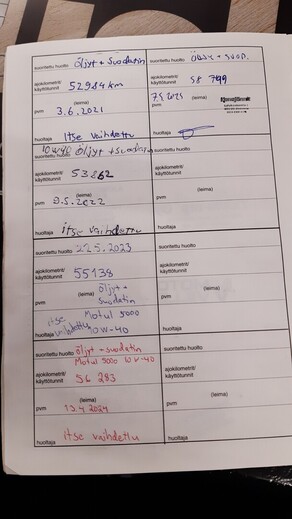 suoritettu huolto öljyt + suodatin
ajokilometrit/
käyttötunnit 52984 km
(leima)
pvm 3.6.2021
huoltaja Itse vaihdettu
suoritettu huolto
ajokilometrit/
käyttötunnit 58 799
(leima)
pvm
huoltaja
10W40 öljyt + suodatin
suoritettu huolto
ajokilometrit/
käyttötunnit 53862
(leima)
pvm 9.5.2022
huoltaja itse vaihdettu
suoritettu huolto
ajokilometrit/
käyttötunnit
(leima)
pvm
huoltaja
suoritettu huolto 22.5.2023
ajokilometrit/
käyttötunnit 55138
(leima) öljyt +
pvm suodatin
Motul 5000
huoltaja itse vaihdettu 10W-40
suoritettu huolto
ajokilometrit/
käyttötunnit
(leima)
pvm
huoltaja
suoritettu huolto öljyt + suodatin
Motul 5000 10W-40
ajokilometrit/
käyttötunnit 56 283
(leima)
pvm 13.4.2024
huoltaja itse vaihdettu
suoritettu huolto
ajokilometrit/
käyttötunnit
(leima)
pvm
huoltaja